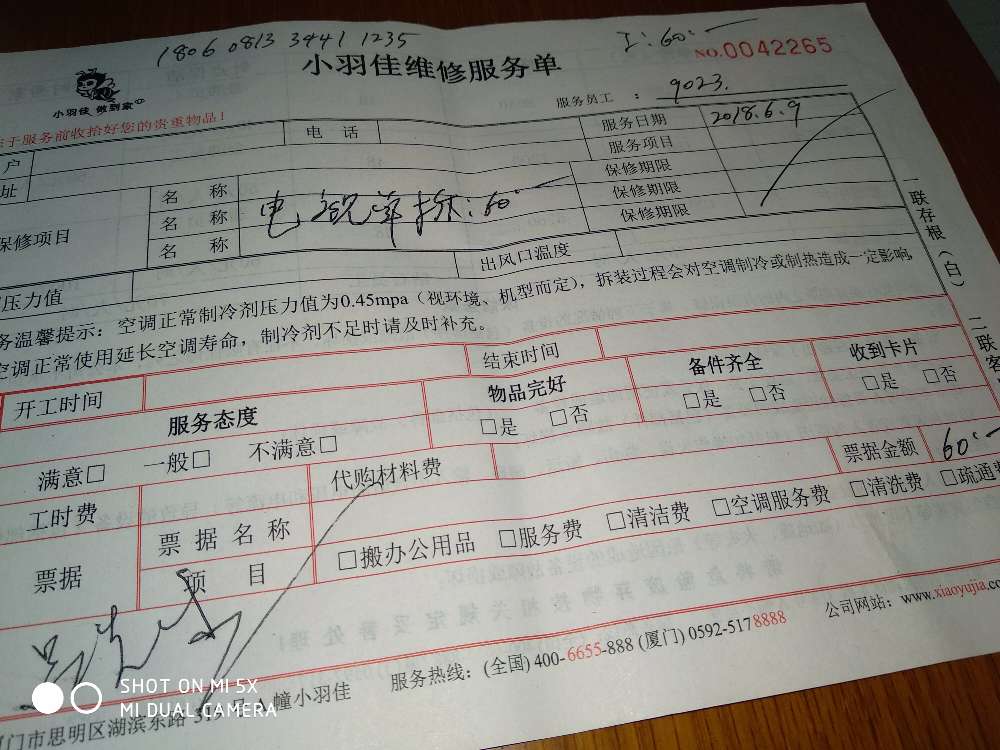 1806 0813 3441 1235
I: 60.—
小羽佳 做到家
小羽佳维修服务单
NO.0042265
服务员工 : 9023.
于服务前收拾好您的贵重物品!
户 电 话 服务日期 2018.6.9
址 服务项目
保修项目 名 称 保修期限
名 称 电视单拆: 60.— 保修期限
名 称 保修期限
压力值 出风口温度
务温馨提示: 空调正常制冷剂压力值为0.45mpa (视环境、机型而定), 拆装过程会对空调制冷或制热造成一定影响,
空调正常使用延长空调寿命, 制冷剂不足时请及时补充。
一联存根(白) 二联客
开工时间 结束时间
服务态度 物品完好 备件齐全 收到卡片
满意□ 一般□ 不满意□ □是 □否 □是 □否 □是 □否
工时费 代购材料费 票据金额 60.—
票据 票据名称 □搬办公用品 □服务费 □清洁费 □空调服务费 □清洗费 □疏通
项 目
服务热线: (全国) 400-6655-888 (厦门) 0592-5178888 公司网站: www.xiaoyujia.
门市思明区湖滨东路 幢小羽佳
SHOT ON MI 5X
MI DUAL CAMERA